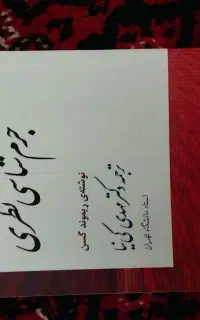 جرم شناسی نظری
نوشته‌ی ریموند گسن
ترجمه دکتر مهدی کی نیا
استاد دانشگاه تهران